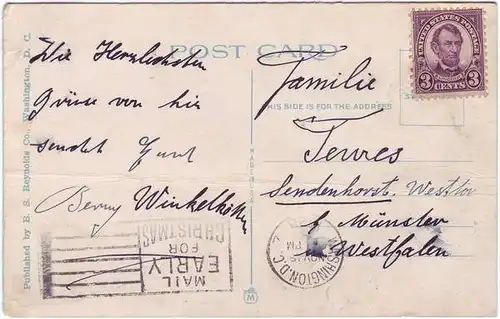 POST CARD
Die Herzlichsten
Grüsse von hier
sendet Euch
Benny Winkelkötter
Familie
THIS SIDE IS FOR THE ADDRESS
Terres
Sendenhorst. Westfn
b/ Münster
in Westfalen
UNITED STATES POSTAGE
3 CENTS 3
WASHINGTON, D.C.
NOV
PM
MAIL
EARLY
FOR
CHRISTMAS
Published by B. S. Reynolds Co., Washington, D. C.